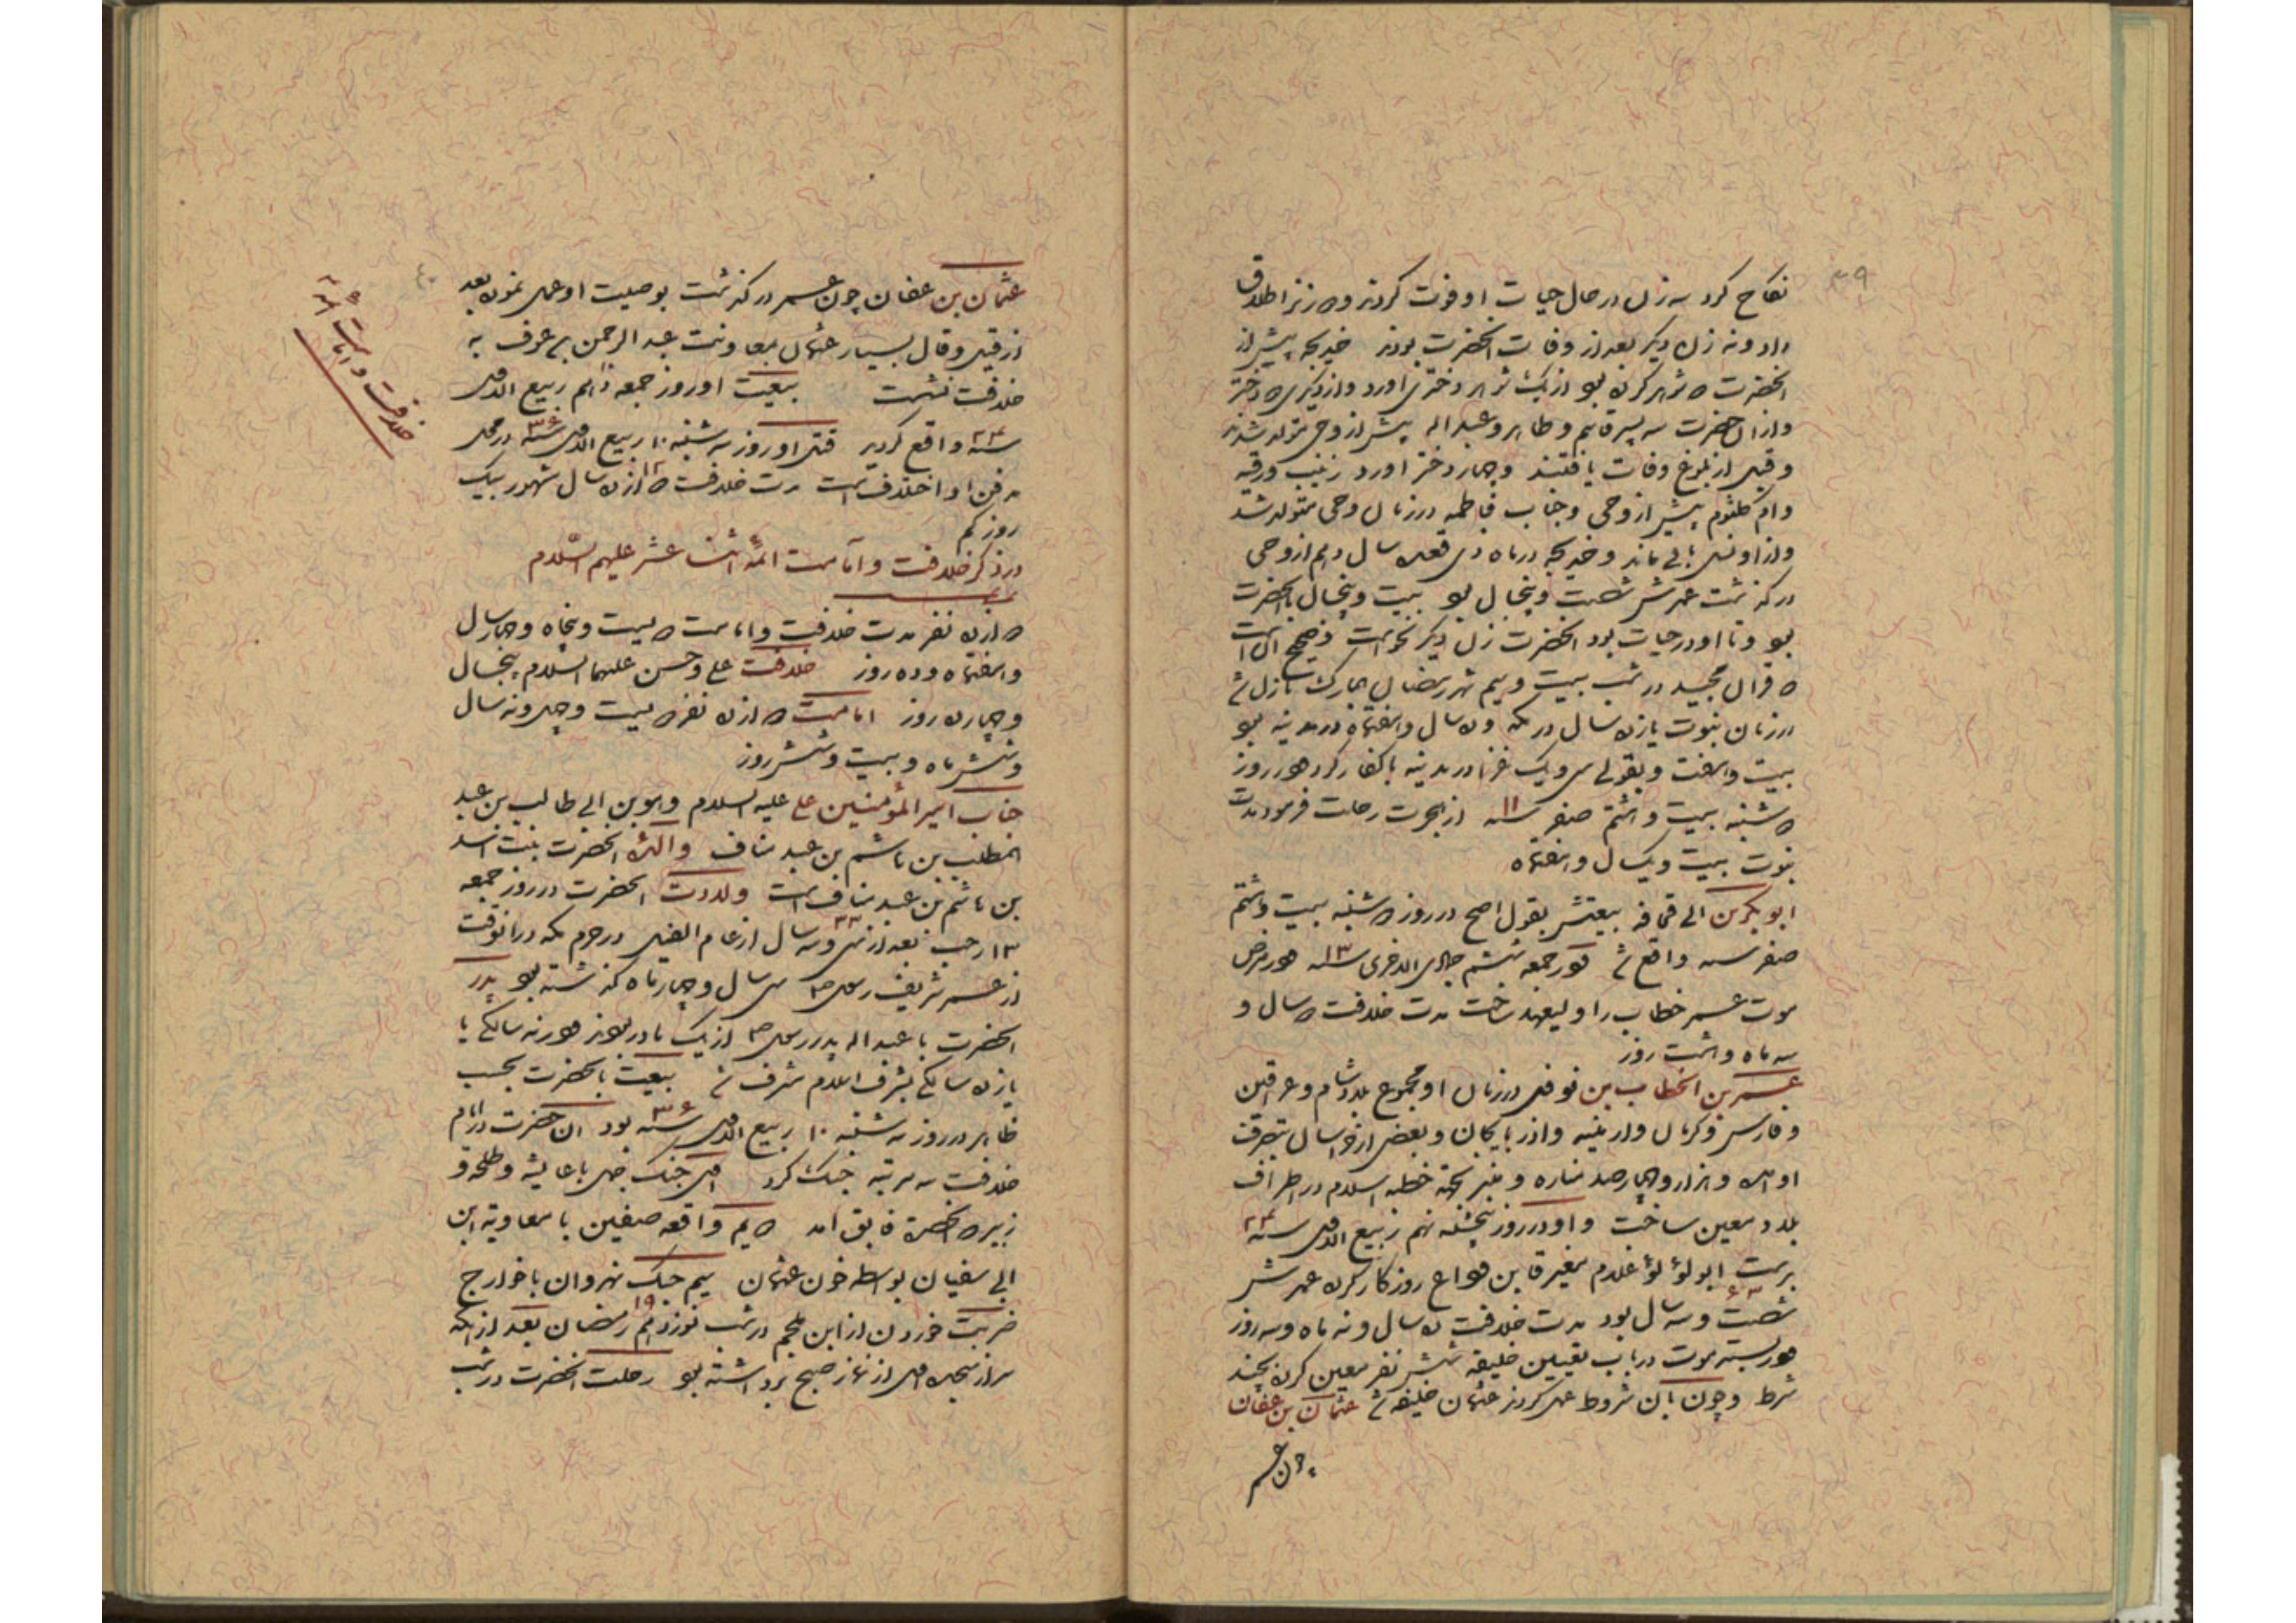 ۳۹
نکاح کرد سه زن در حال حیات او فوت کردند و ۲ زنرا طلاق
داد و نه زن دیگر بعد از وفات انحضرت بودند خدیجه پیش از
انحضرت ۲ شوهر کرده بود از یک شوهر دختری اورد و از دیگری ۲ دختر
و از ان حضرت سه پسر قاسم و طاهر و عبد اله پیش از وحی متولد شدند
و قبل از بلوغ وفات یافتند و چهار دختر اورد زینب و رقیه
و ام کلثوم پیش از وحی و جناب فاطمه در زمان وحی متولد شد
و از او نسل باقی ماند و خدیجه در ماه ذی قعده سال دهم از وحی
در گذشت عمرش شصت و پنجسال بود بیست و پنجسال با انحضرت
بود و تا او در حیات بود انحضرت زن دیگر نخواست و صحیح ان است
که قران مجید در شب بیست و سیم شهر رمضان المبارک نازل شد
در زمان نبوت یازده سال در مکه و ده سال و هفتماه در مدینه بود
بیست و هفت و بقولی سی و یک غزا در مدینه با کفار کرد و در روز
۲ شنبه بیست و هشتم صفر سنه ۱۱ از هجرت رحلت فرمود مدت
نبوت بیست و یکسال و هفتماه
ابو بکر بن ابی قحافه بیعتش بقول اصح در روز ۲ شنبه بیست و هشتم
صفر سنه واقع شد و در جمعه ششم جمادی الاخری سنه ۱۳ و در مرض
موت عمر خطاب را ولیعهد ساخت مدت خلافت ۲ سال و
سه ماه و هشت روز
عمر بن الخطاب بن نوفل در زمان او مجموع بلاد شام و عراقین
و فارس و کرمان و ارمینیه و اذربایجان و بعضی از خراسان بتصرف
او امد و هزار و چهارصد مناره و منبر بجهة خطبه اسلام در اطراف
بلاد معین ساخت و او در روز پنجشنبه نهم ربیع الاول سنه ۲۴
بدست ابو لؤلؤ غلام مغیره وداع روزگار کرد عمرش
شصت و سه ۶۳ سال بود مدت خلافت ده سال و نه ماه و سه روز
و در بستر موت در باب تعیین خلیفه شش نفر معین کرده بچند
شرط و چون بان شروط عمل کردند عثمان خلیفه شد عثمان بن عفان
چون عمر
۴۰
عثمان بن عفان چون عمر در گذشت بوصیت او عمل نموده بعد
از قیل و قال بسیار عثمان بمعاونت عبد الرحمن بن عوف به
خلافت نشست بیعت او روز جمعه دهم ربیع الاول
سنه ۲۴ واقع گردید قتل او روز سه شنبه ۱۰ ربیع الاول سنه ۳۶ در محل
مدفن او اختلاف است مدت خلافت ۱۲ دوازده سال شهور بیک
روز کم
در ذکر خلافت و امامت ائمه اثنا عشر علیهم السلام
دوازده نفر مدت خلافت و امامت دویست و پنجاه و چهار سال
و هفتماه و ده روز خلافت علی و حسن علیهما السلام پنجسال
و چهارده روز امامت دوازده نفر دویست و چهل و نه سال
و شش ماه و بیست و شش روز
جناب امیر المؤمنین علی علیه السلام و هو بن ابی طالب بن عبد
المطلب بن هاشم بن عبد مناف والده انحضرت بنت اسد
بن هاشم بن عبد مناف است ولادت انحضرت در روز جمعه
۱۳ رجب بعد از سی و سه ۳۳ سال از عام الفیل در حرم مکه در انوقت
از عمر شریف رسول ص سی سال و چهار ماه گذشته بود پدر
انحضرت با عبد اله پدر رسول ص از یک مادر بودند و در نه سالگی یا
یازده سالگی بشرف اسلام مشرف شد بیعت بانحضرت بحسب
ظاهر در روز سه شنبه ۱۰ ربیع الاول سنه ۳۶ بود ان حضرت در ایام
خلافت سه مرتبه جنگ کرد اول جنگ جمل با عایشه و طلحه و
زبیر که انحضرت فایق امد دویم واقعه صفین با معاویه ابن
ابی سفیان بواسطه خون عثمان سیم جنگ نهروان با خوارج
ضربت خوردن از ابن ملجم در شب نوزدهم ۱۹ رمضان بعد از انکه
سر از سجده اول از نماز صبح برداشته بود رحلت انحضرت در شب
خلافت و امامت ائمه